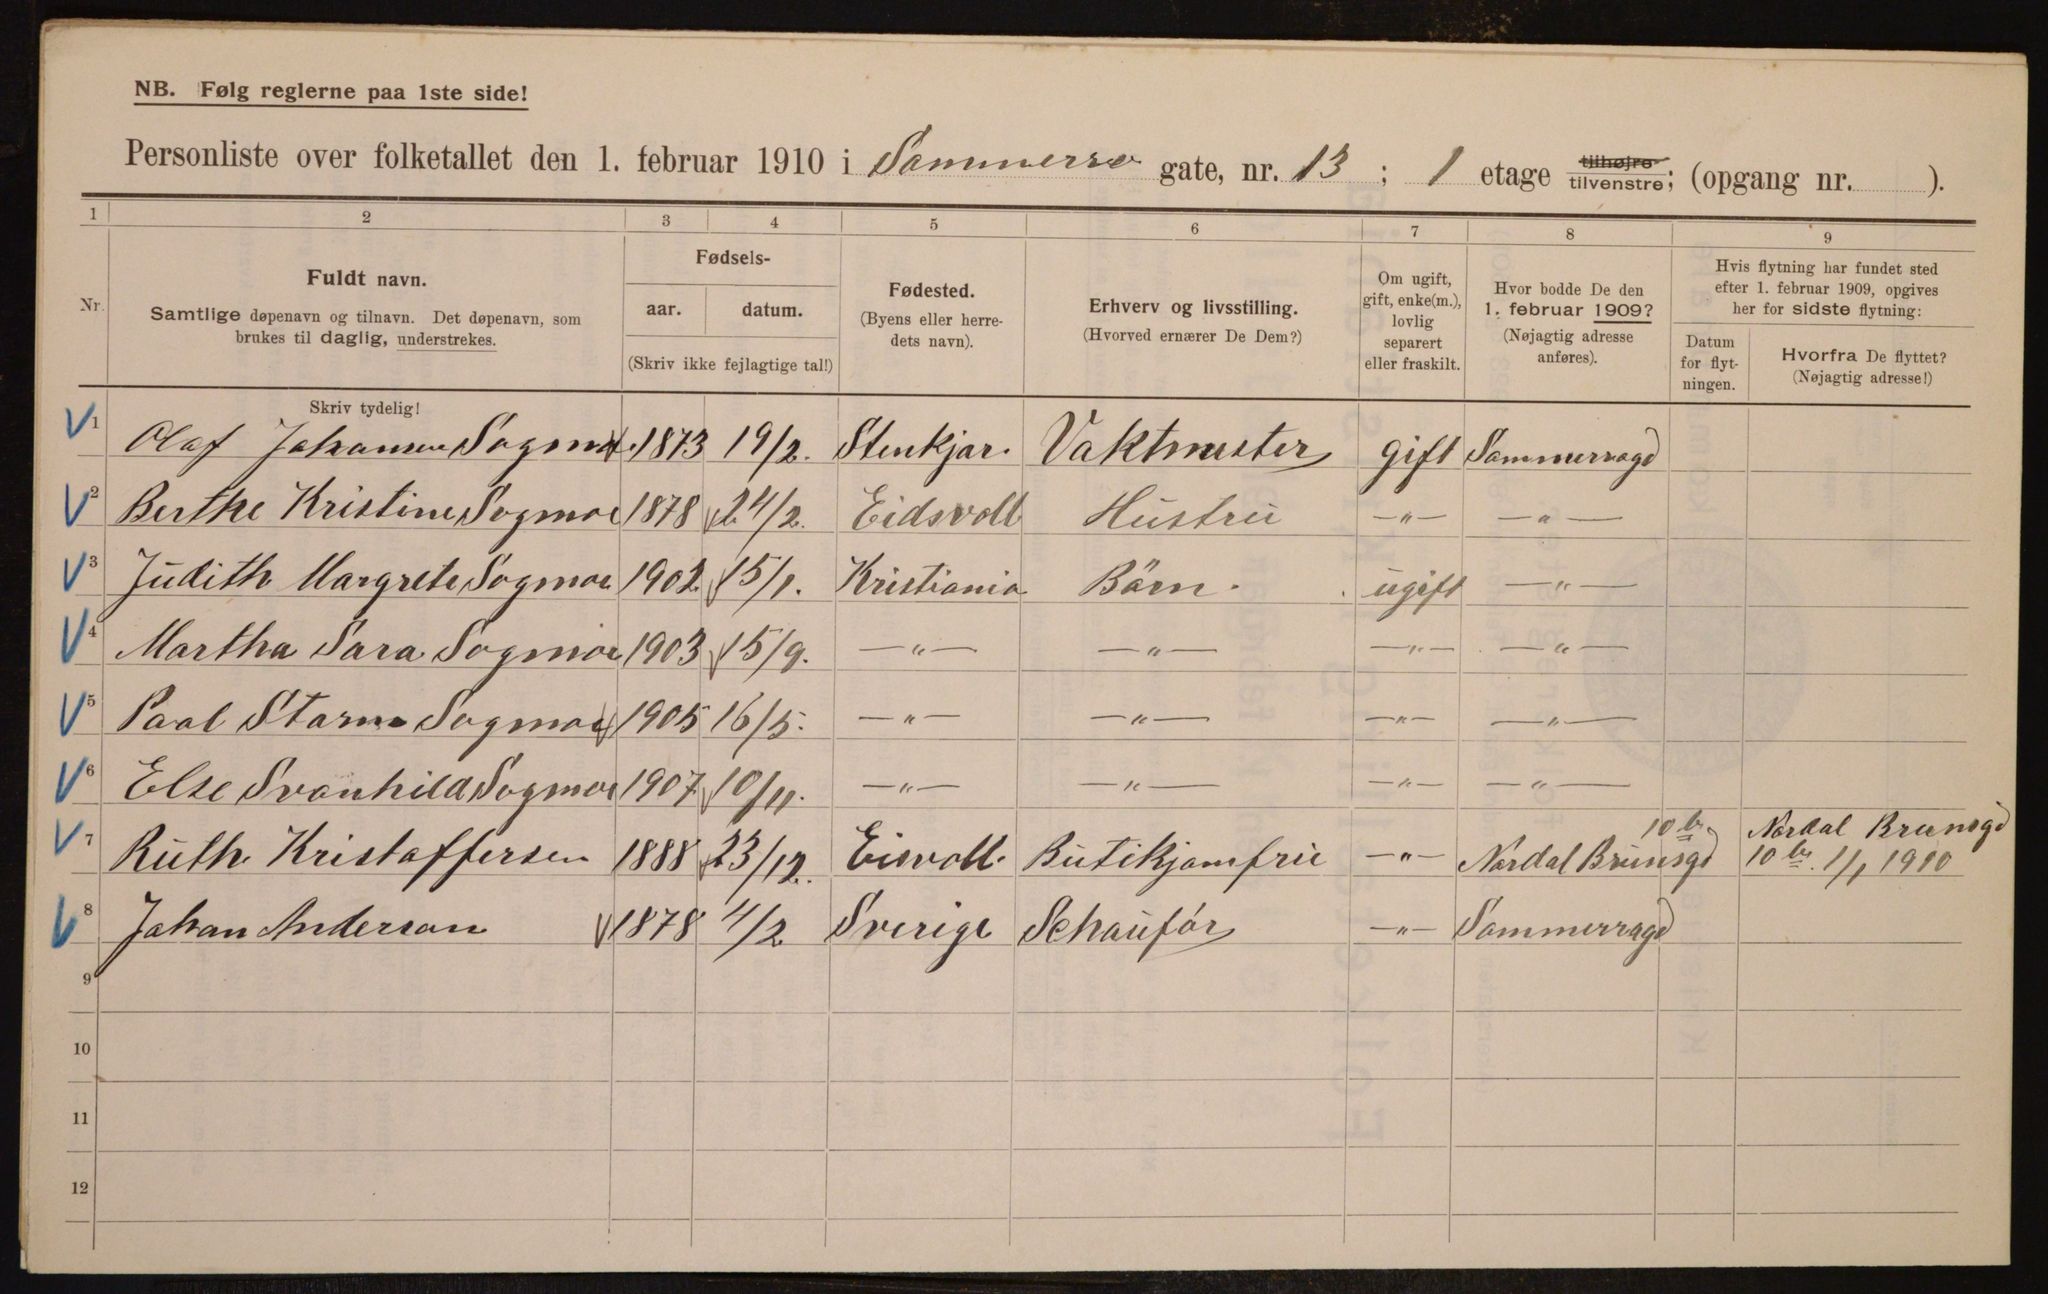 NB. Følg reglerne paa 1ste side!
Personliste over folketallet den 1. februar 1910 i Sommerro gate, nr. 13 ; 1 etage tilhøjre tilvenstre; (opgang nr. ).
1 2 3 4 5 6 7 8 9
Nr.
Fuldt navn.
Samtlige døpenavn og tilnavn. Det døpenavn, som
brukes til daglig, understrekes.
Skriv tydelig!
Fødsels-
aar. datum.
(Skriv ikke fejlagtige tal!)
Fødested.
(Byens eller herre-
dets navn).
Erhverv og livsstilling.
(Hvorved ernærer De Dem?)
Om ugift,
gift, enke(m.),
lovlig
separert
eller fraskilt.
Hvor bodde De den
1. februar 1909?
(Nøjagtig adresse
anføres).
Hvis flytning har fundet sted
efter 1. februar 1909, opgives
her for sidste flytning:
Datum
for flyt-
ningen.
Hvorfra De flyttet?
(Nøjagtig adresse!)
1 Olaf Johansen Sogmo 1873 19/2. Stenkjær. Vaktmester gift Sommerrogd
2 Berthe Kristine Sogmoe 1878 24/2. Eidsvoll Hustru —"— —"—
3 Judith Margrete Sogmoe 1902 15/1. Kristiania Börn. ugift —"—
4 Martha Sara Sogmoe 1903 15/9. —"— —"— —"— —"—
5 Paal Storm Sogmoe 1905 16/5. —"— —"— —"— —"—
6 Else Svanhild Sogmoe 1907 10/11. —"— —"— —"— —"—
10 b. Nordal Brunsgd
7 Ruth Kristoffersen 1888 23/12. Eisvoll. Butikjomfru —"— Nordal Brunsgd 10 b. 1/1 1910
8 Johan Anderson 1878 4/2 Sverige Schauför —"— Sommerrogd
9
10
11
12